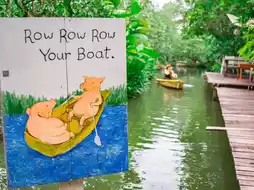 Row Row Row
Your Boat.